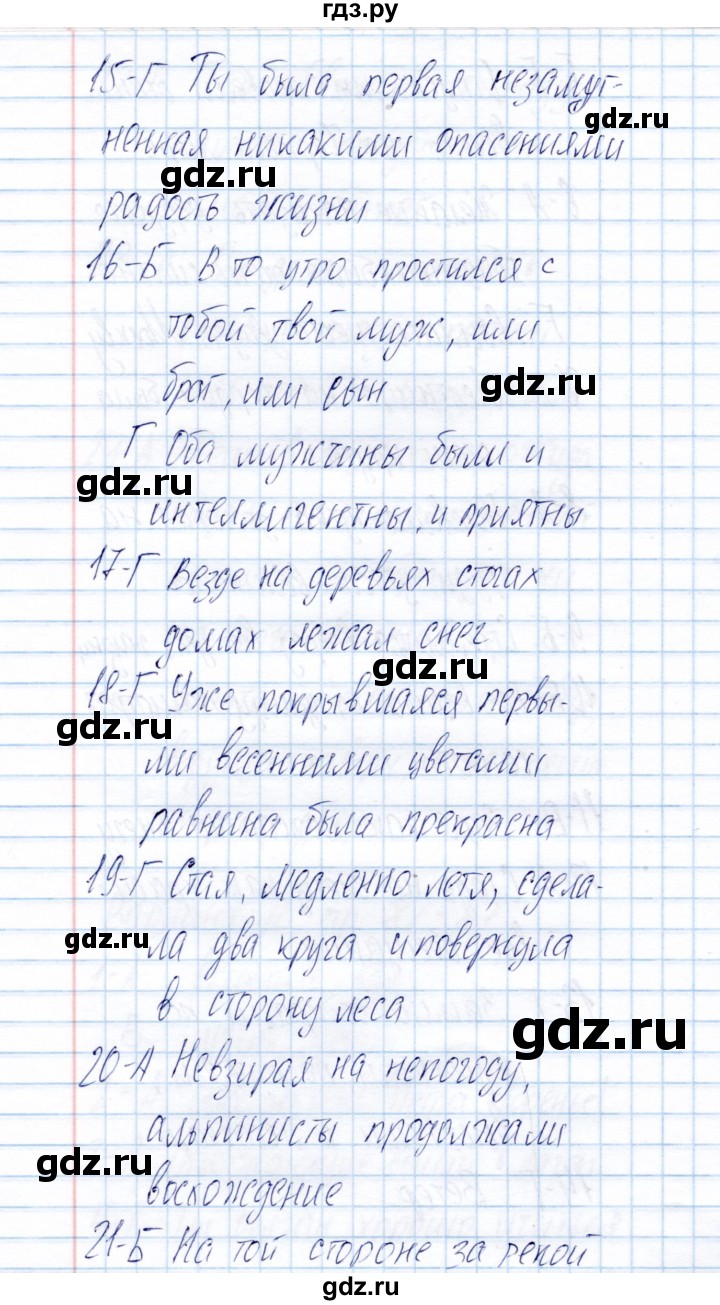 гдз.ру
15-Г Ты была первая незамут-
gdz.ru
ненная никакими опасениями
gdz.ru
радость жизни
16-Б В то утро простился с
тобой твой муж, или
брат, или сын
gdz.ru
Г Оба мужчины были и
gdz.ru
интеллигентны, и приятны
17-Г Везде на деревьях стогах
домах лежал снег
gdz.ru
18-Г Уже покрывшаяся первы-
gdz.ru
ми весенними цветами
равнина была прекрасна
19-Г Стая, медленно летя, сдела-
gdz.ru
ла два круга и повернула
в сторону леса
gdz.ru
20-А Невзирая на непогоду,
альпинисты продолжали
gdz.ru
восхождение
21-Б На той стороне за рекой
gdz.ru